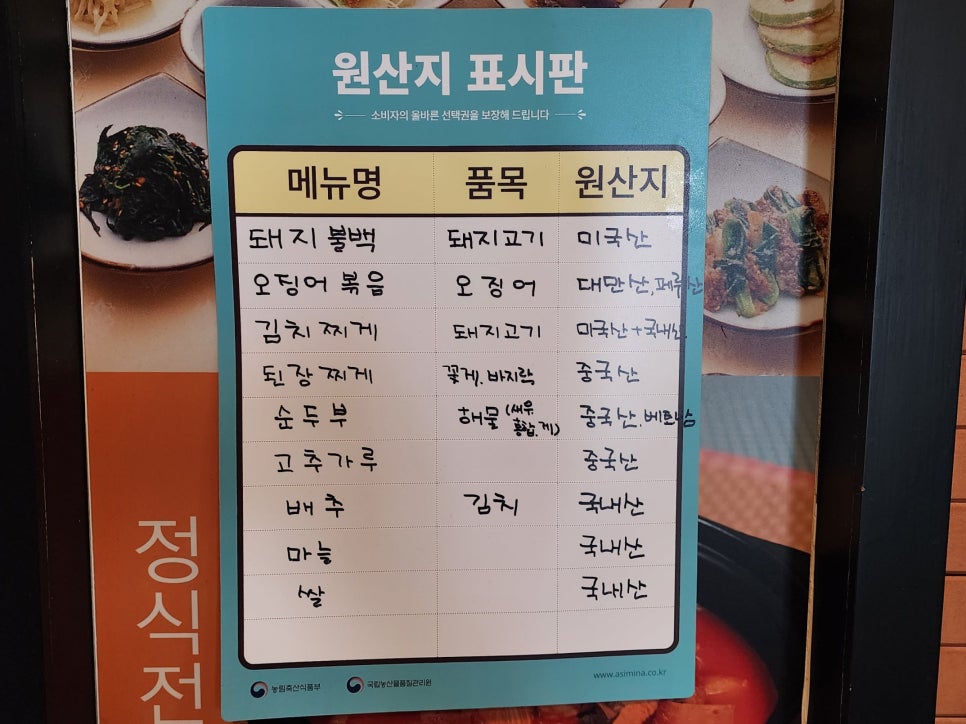 원산지 표시판
소비자의 올바른 선택권을 보장해 드립니다
메뉴명 품목 원산지
돼지불백 돼지고기 미국산
오징어 볶음 오징어 대만산, 페루산
김치찌게 돼지고기 미국산+국내산
된장찌게 꽃게, 바지락 중국산
순두부 해물(새우 홍합, 게) 중국산, 베트남
고추가루 중국산
배추 김치 국내산
마늘 국내산
쌀 국내산
농림축산식품부 국립농산물품질관리원 www.asimina.co.kr
정식전